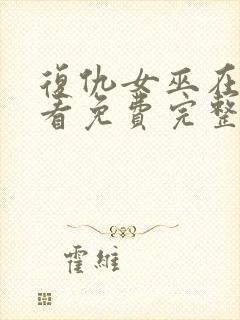 復仇女巫在
看免費完整
霍維